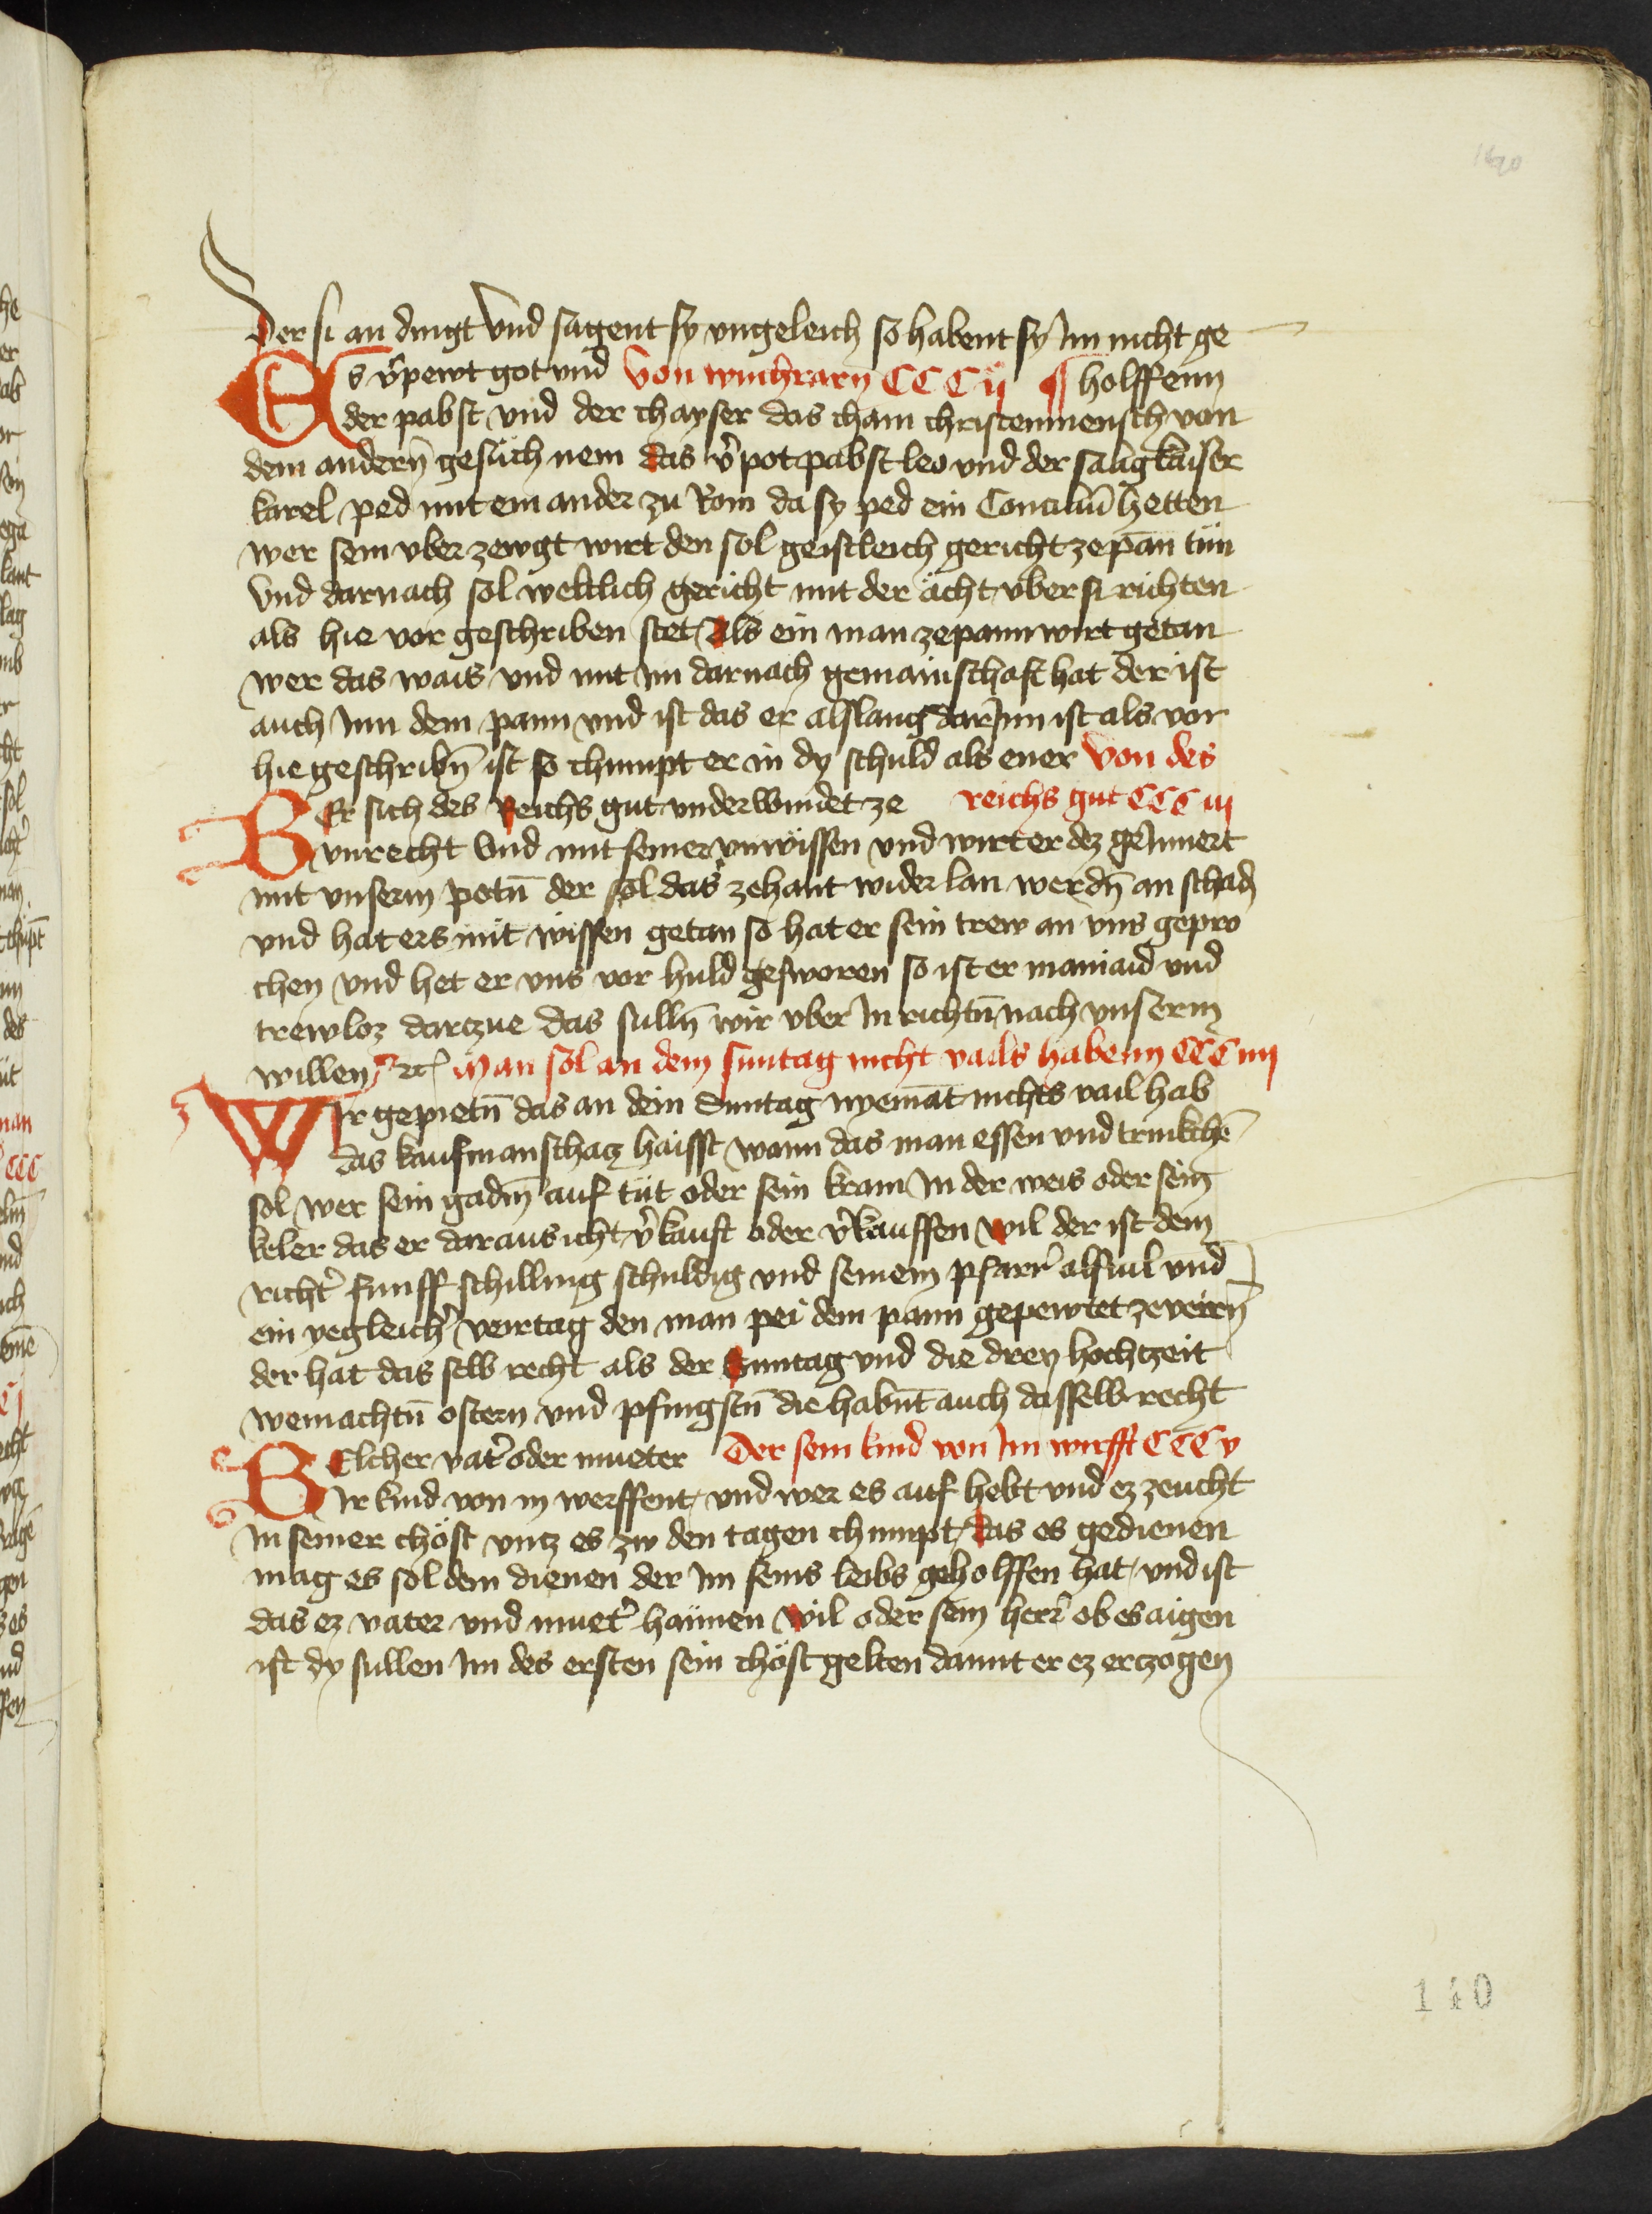 Der si an dingt Vnd sagent sy vngeleich so habent sy Im nicht ge
Es v̉pewt got vnd Von wuchrarn̄ CCC ij ¶ holffenn
der pabst vnd der chayser das cham christenmensch von
dem andern̄ gesuch nem das v̉pot pabst leo vnd der salig kaiser
karel ped mit ein ander zu Rom da sy ped ein Conciliū hetten
wer sein vber zewgt wirt den sol geistleich gericht ze pān tün
Vnd darnach sol weltlich gericht mit der ächt vber si richten
als hie vor geschriben stet Als ein man ze pann wirt getan
wer das wais vnd mit im darnach gemainschaft hat der ist
auch Inn dem pann vnd ist das er alslang dar Inn ist als vor
hie geschribn̄ ist so chumpt er in dy schuld als ener Von des
WEr sich des Reichs gut vnderwindet ze reichs gut CCC iij
vnrecht Vnd mit seiner vnwissen vnd wirt er dez geInnert
mit vnserm potn̄ der sol das zehant wider lan werdn̄ an schadn
vnd hat ers mit wissen getan so hat er sein trew an vns gepro
chen vnd het er vns vor huld gesworen so ist er mainaid vnd
trewloz darczue das sulln̄ wir vber In richtn̄ nach vnserm
willen ꝛc Man sol an dem suntag nicht vails habenn CCC iiij
WIr gepietn̄ das an dem Suntag nyemāt nichts vail hab
das kaufmanschacz haisst wann das man essen vnd trinkchē
sol wer sein gadm̄ auf tüt oder sein kram In der weis oder sein̄
keler das er daraus icht v̉kauft oder v̉kauffen wil der ist dem
richt̉ funff schilling schuldig vnd seinem pfarr̉ alsuil vnd
ein yegleich̉ veirtag den man pei dem pann gepewtet ze veirn̄
der hat das selb recht als der Suntag vnd die drey hochtzeit
weinachtn̄ ostern vnd pfingstn̄ die habn̄t auch dasselb recht
WElcher vat̉ oder mueter Der sein kind von Im wirfft CCC v
Ir kind von in werffent vnd wer es auf hebt vnd ez zeucht
In seiner chöst vncz es zw den tagen chumpt das es gedienen
mag es sol dem dienen der im seins leibs geholffen hat vnd ist
das ez vater vnd muet̉ haimen wil oder sein herr̉ ob es aigen
ist dy sullen Im des ersten sein chöst gelten damit er ez erczogen
140